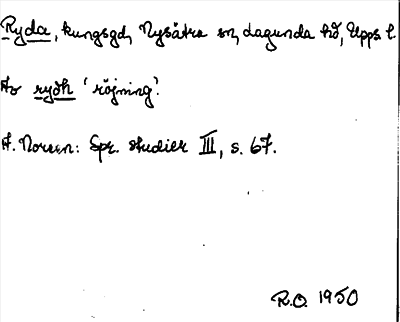 Ryda, kungsgd, Nysätra sn, Lagunda hd, Upps. l.
Av rydh 'röjning'.
A. Noreen: Spr. studier III, s. 67.
R.O. 1950